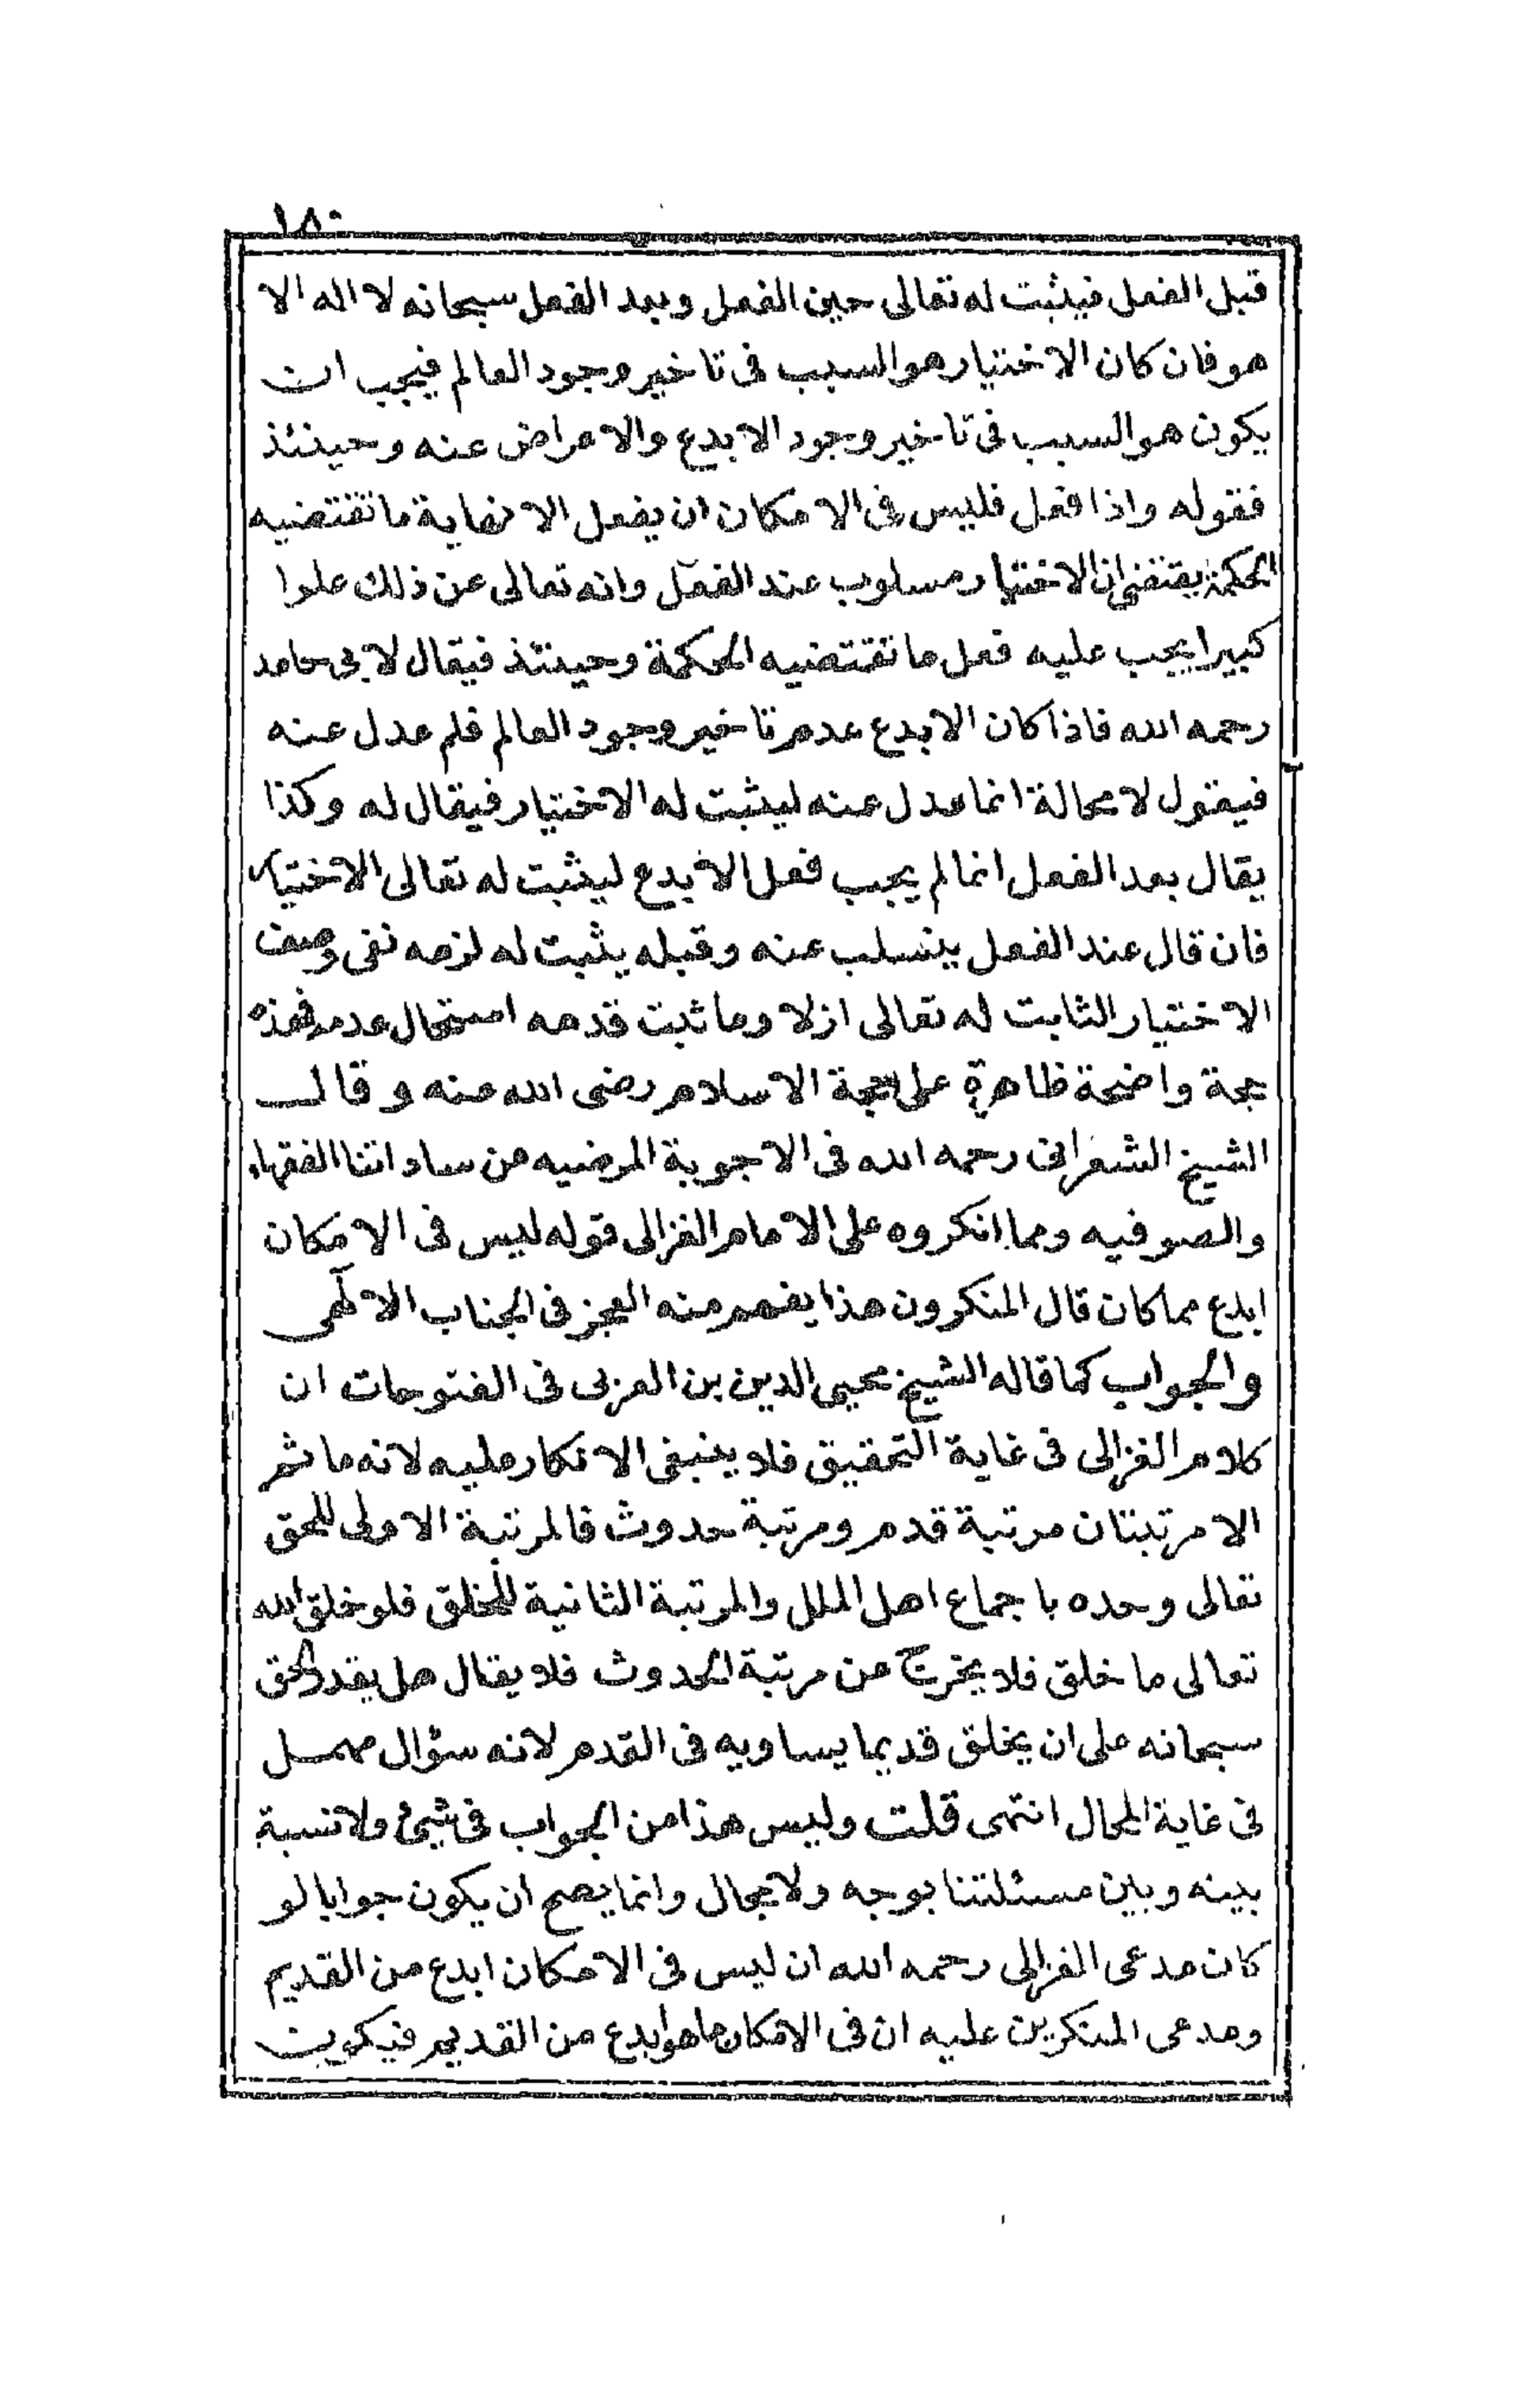 ١٨٠
قبل الفعل فيثبت له تعالى حين الفعل وبعد الفعل سبحانه لا اله الا
هو فان كان الاختيار هو السبب فى تاخير وجود العالم فيجب ان
يكون هو السبب فى تاخير وجود الابدع والاعراض عنه وحينئذ
فقوله واذا فعل فليس فى الامكان ان يفعل الا نهاية ما تقتضيه
الحكمة يقتضى ان الاختيار مسلوب عند الفعل وانه تعالى عن ذلك علوا
كبيرا يجب عليه فعل ما تقتضيه الحكمة وحينئذ فيقال لابى حامد
رحمه الله فاذا كان الابدع عدم تاخير وجود العالم فلم عدل عنه
فيقول لا محالة انما عدل عنه ليثبت له الاختيار فيقال له وكذا
يقال بعد الفعل انما لم يجب فعل الابدع ليثبت له تعالى الاختيار
فان قال عند الفعل ينسلب عنه وقبله يثبت له لزمه نفى وصف
الاختيار الثابت له تعالى ازلا وما ثبت قدمه استحال عدمه فهذه
حجة واضحة ظاهرة على حجة الاسلام رضى الله عنه وقال
الشيخ الشعرانى رحمه الله فى الاجوبة المرضيه من ساداتنا الفقهاء
والصوفيه ومما انكروه على الامام الغزالى قوله ليس فى الامكان
ابدع مما كان قال المنكرون هذا يفهم منه العجز فى الجناب الالهى
والجواب كما قاله الشيخ محيى الدين بن العربى فى الفتوحات ان
كلام الغزالى فى غاية التحقيق فلا ينبغى الانكار عليه لانه ما ثم
الا مرتبتان مرتبة قدم ومرتبة حدوث فالمرتبة الاولى للحق
تعالى وحده باجماع اهل الملل والمرتبة الثانية للخلق فلو خلق الله
تعالى ما خلق فلا يخرج عن مرتبة الحدوث فلا يقال هل يقدر الحق
سبحانه على ان يخلق قديما يساويه فى القدم لانه سؤال مهمل
فى غاية المحال انتهى قلت وليس هذا من الجواب فى شيئ ولا نسبة
بينه وبين مسئلتنا بوجه ولا بحال وانما يصح ان يكون جوابا لو
كان مدعى الغزالى رحمه الله ان ليس فى الامكان ابدع من القديم
ومدعى المنكرين عليه ان فى الامكان ما هو ابدع من القديم فيكون